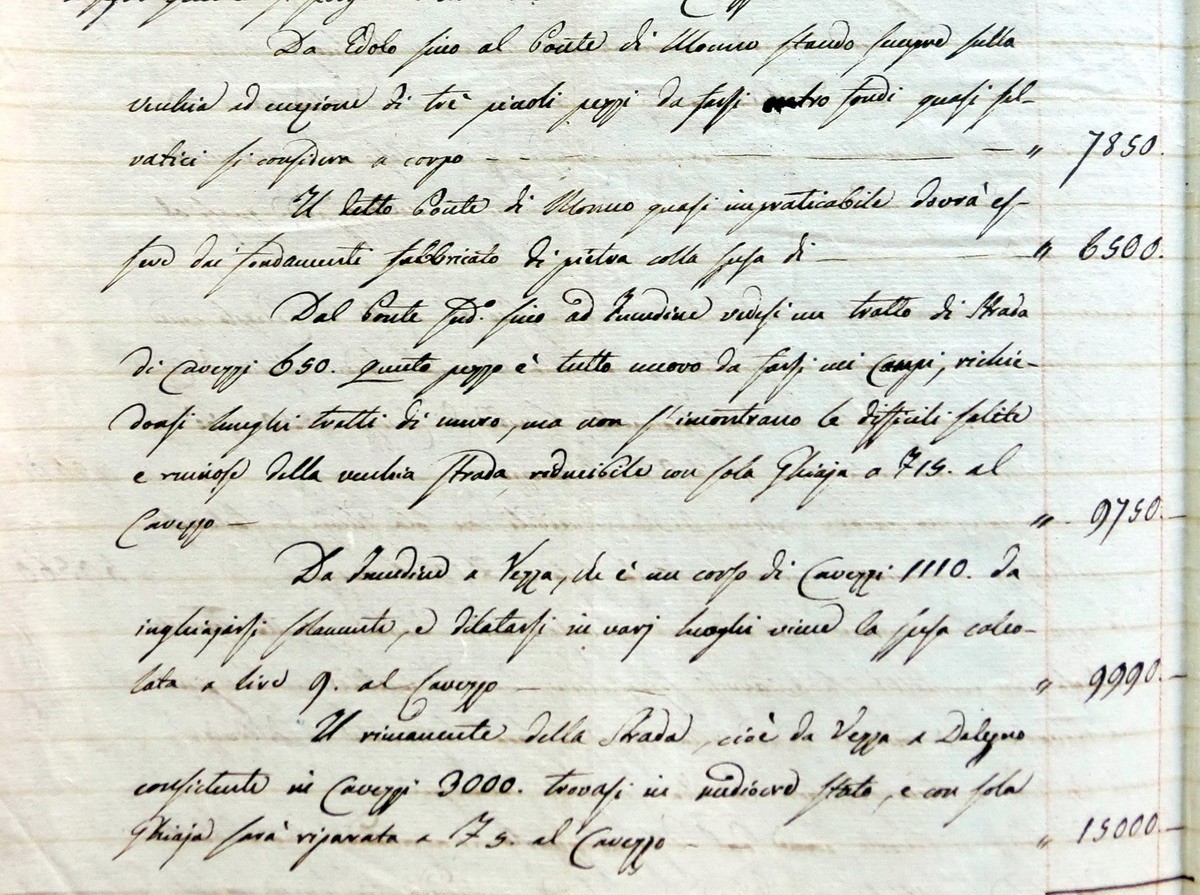 Da Edolo sino al Ponte di Monno stando sempre sulla
vecchia ad eccezione di trè piccoli pezzi da farsi entro fondi quasi sel-
vatici si considera a corpo - - - " 7850.
Il detto Ponte di Monno quasi impraticabile dovrà es-
sere dai fondamenti fabbricato di pietra colla spesa di — " 6500.
Dal Ponte sud.º sino ad Incudine vedesi un tratto di Strada
di Cavezzi 650. questo pezzo è tutto nuovo da farsi nei Campi, richie-
donsi lunghi tratti di muro, ma non s'incontrano le difficili salite
e ruinose della vecchia strada, reducibile con sola Ghiaja a 15. al
Cavezzo — " 9750.
Da Incudine a Vezza, che è un corso di Cavezzi 1110. da
inghiajarsi solamente, e dilatarsi in varj luoghi viene la spesa calco-
lata a lire 9. al Cavezzo — " 9990.
Il rimanente della Strada, cioè da Vezza a Dalegno
consistente in Cavezzi 3000. trovasi in mediocre stato, e con sola
Ghiaja sarà riparata a 5. al Cavezzo - " 15000.